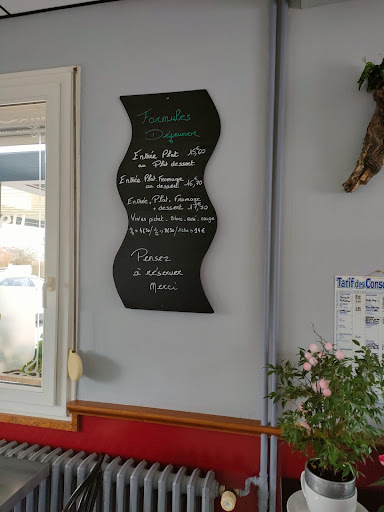 Formules
Déjeuner
Entrée Plat 15,60
ou Plat dessert
Entrée Plat Fromage
ou dessert 16,70
Entrée, Plat, Fromage
+ dessert 17,70
Vin en pichet. Blanc, rosé, rouge
Pensez
à réserver
Merci
Tarif des Conso